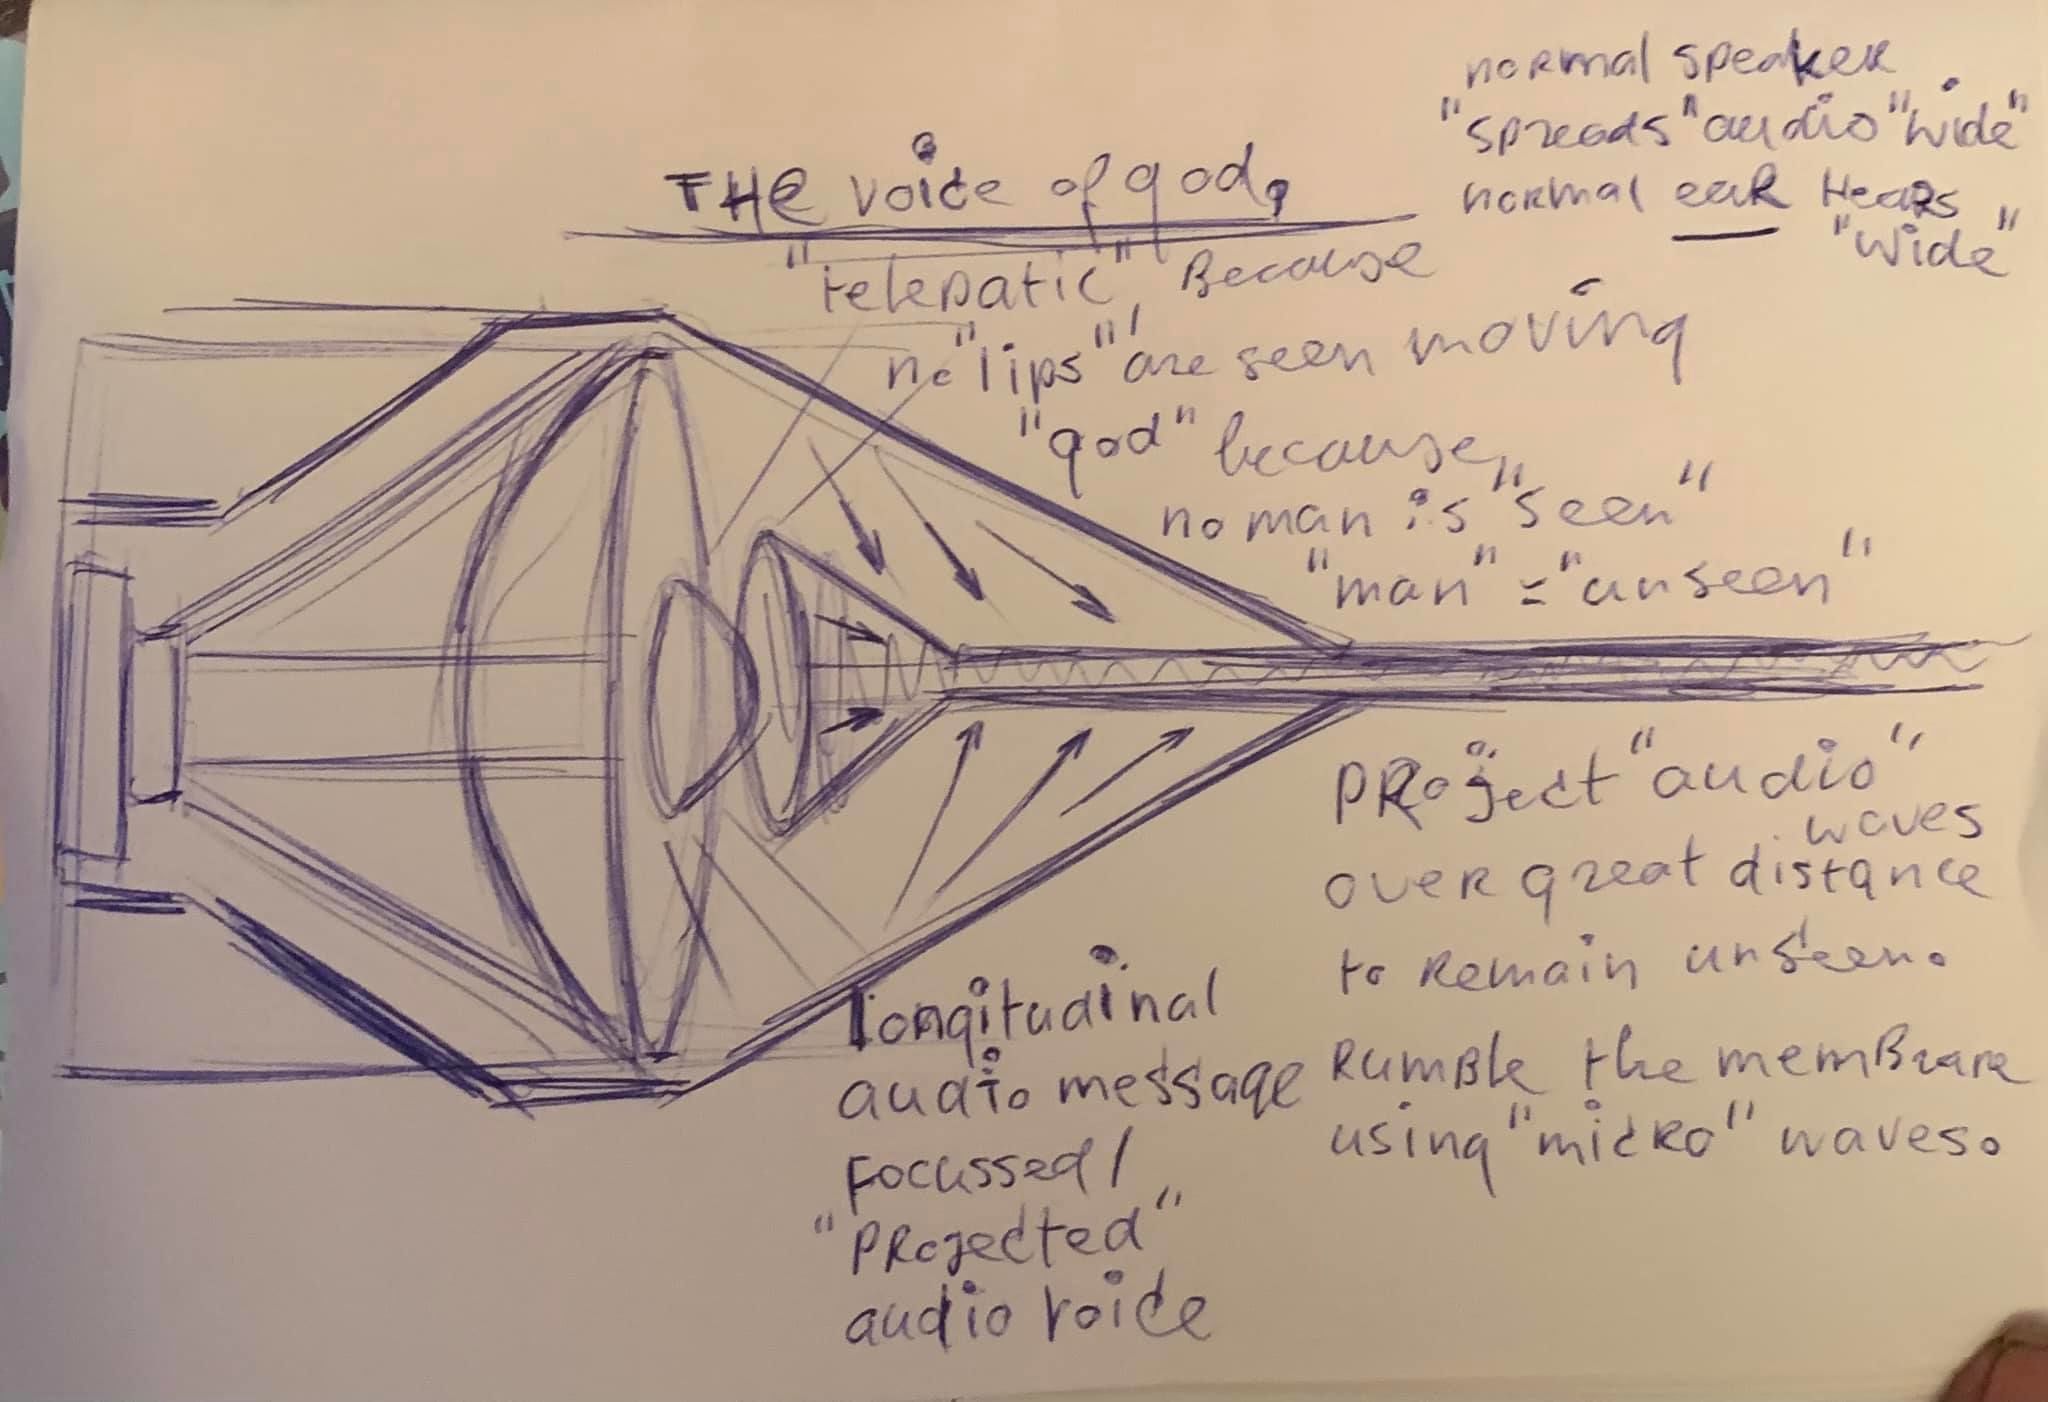 normal speaker
"spreads" audio "wide"
normal ear Hears
"wide"
THE voice of god.
"telepatic", Because
no "lips" are seen moving
"god" because,
no man is "seen"
"man" = "unseen"
project "audio"
waves
over great distance
to remain unseen.
Rumble the memBrane
using "micro" waves.
longitudinal
audio message
Focussed /
"projected"
audio voice